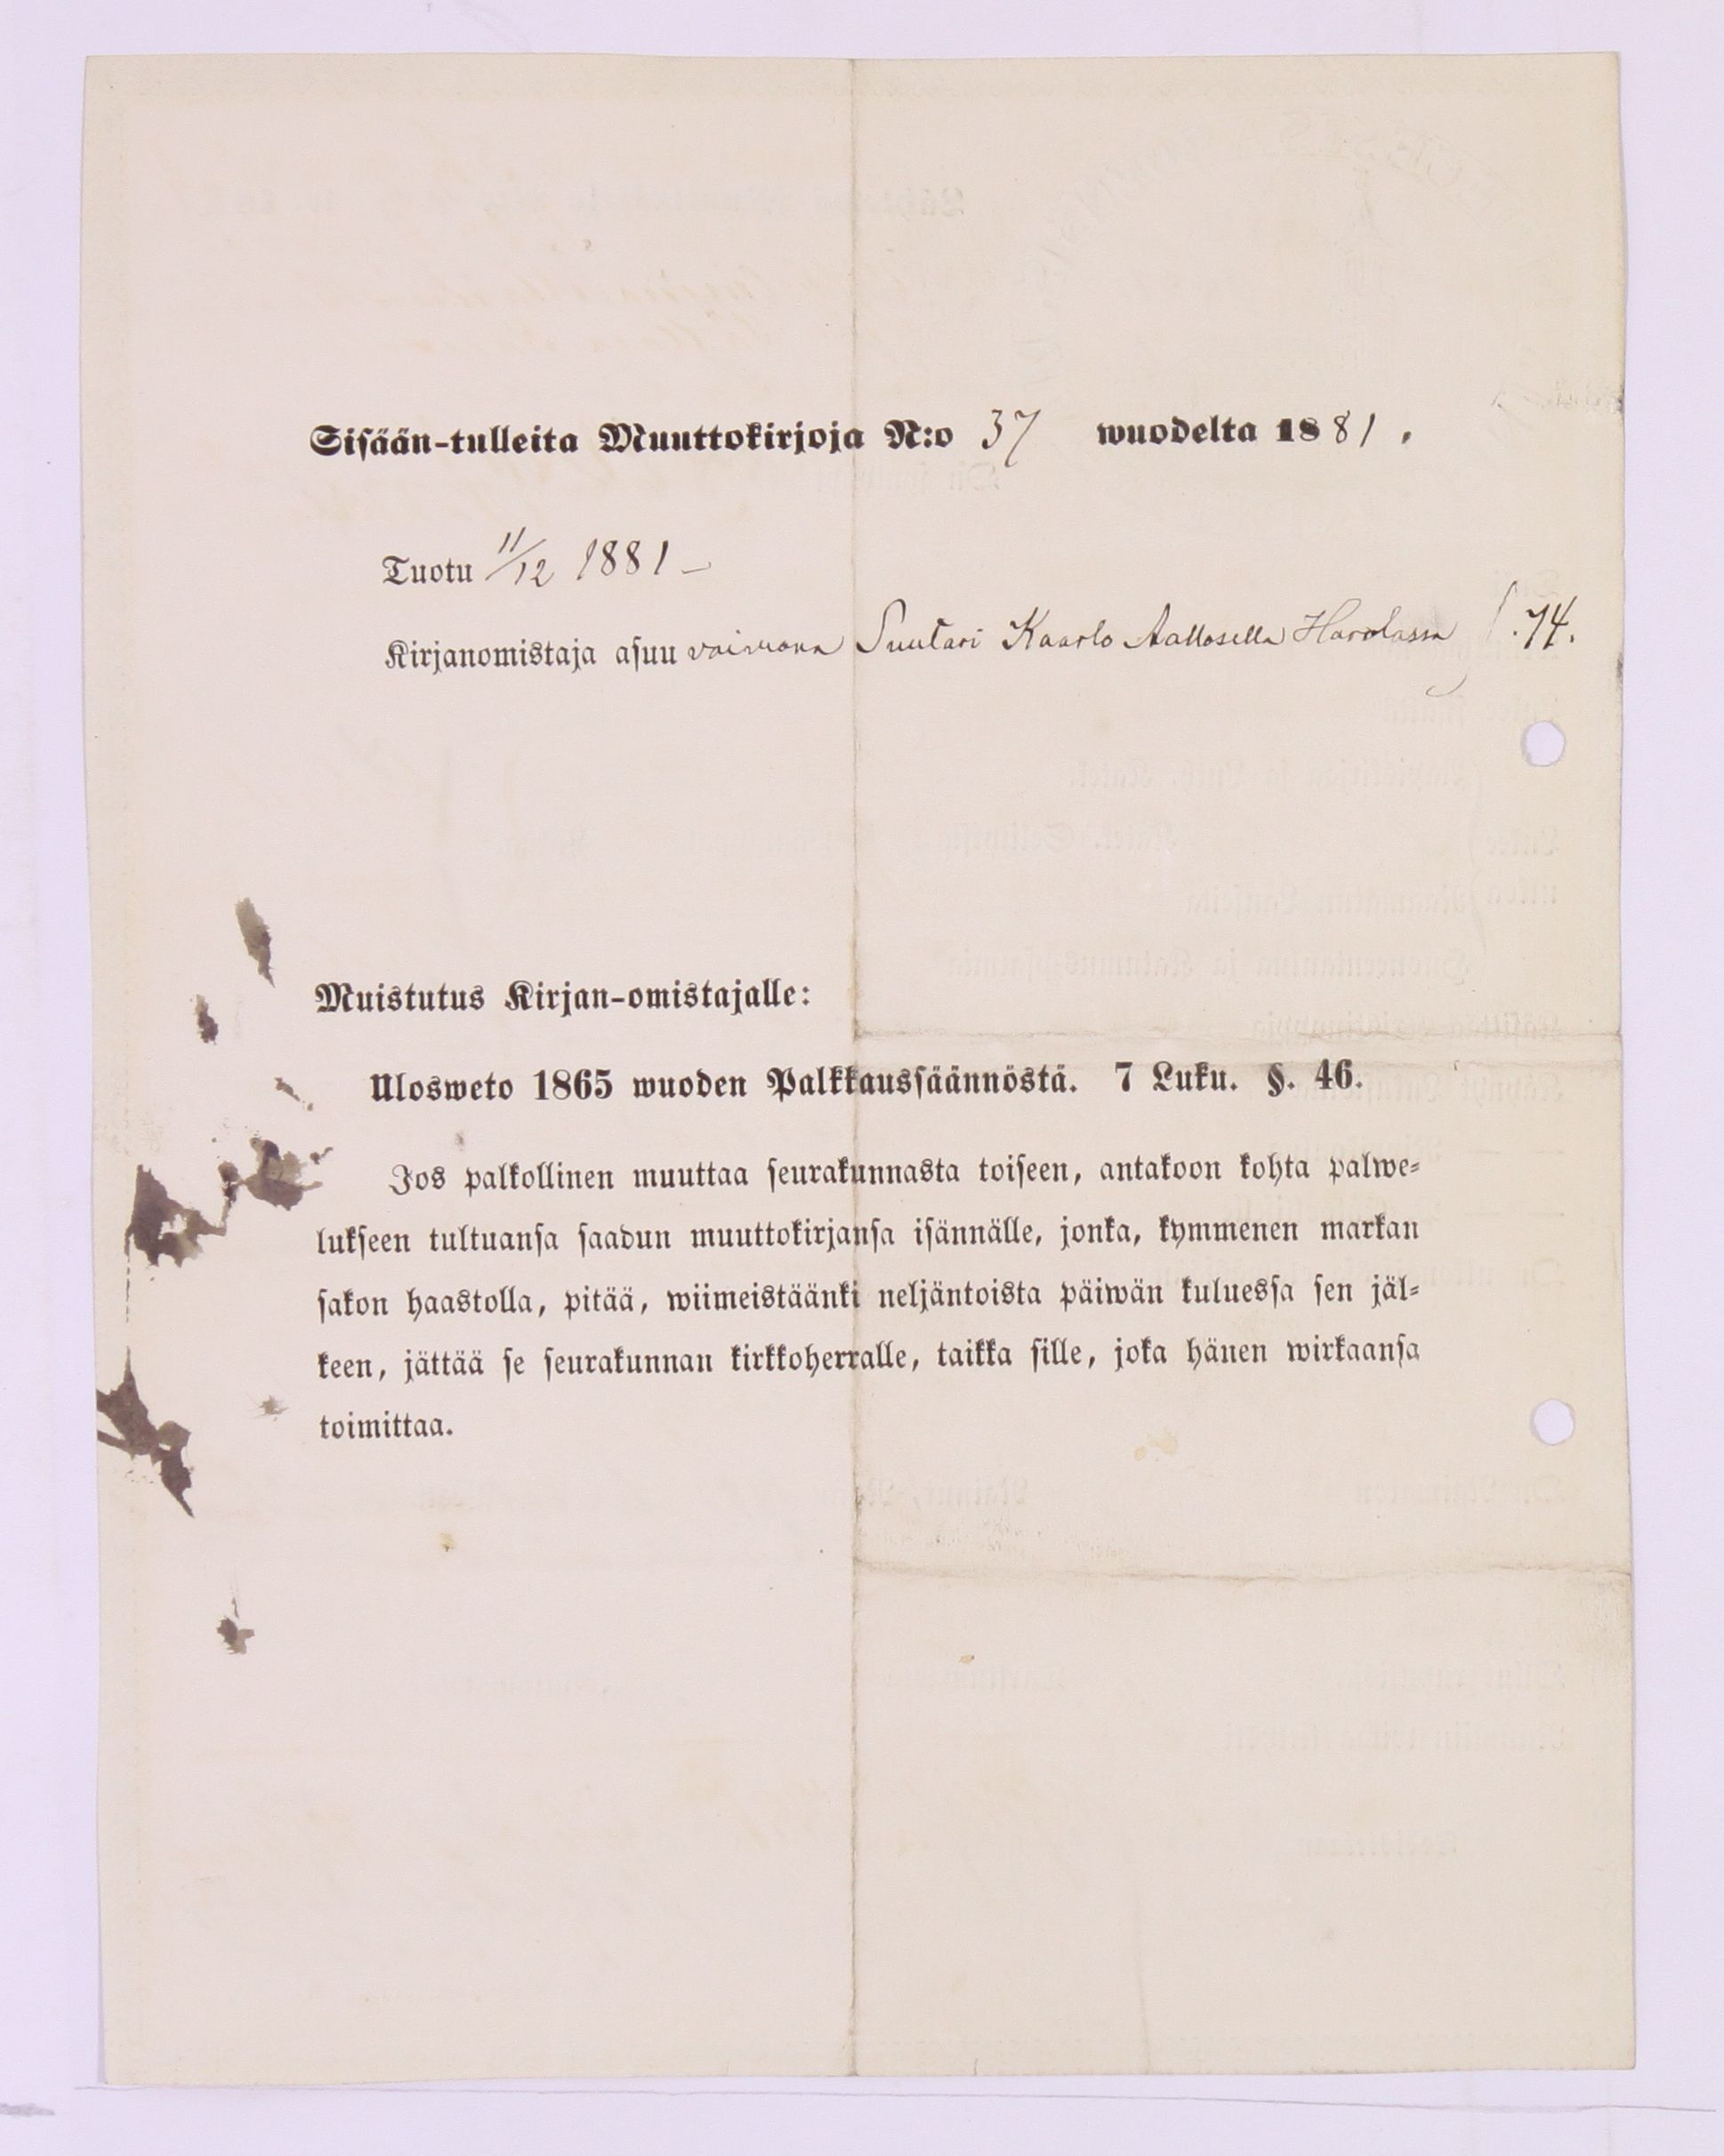 Sisään-tulleita Muuttokirjoja N:o 37 wuodelta 1881.
Tuotu 11/12 1881 –
Kirjanomistaja asuu vaimona Suutari Kaarlo Aallosella Harolassa S. 74.
Muistutus Kirjan-omistajalle:
Ulosweto 1865 wuoden Palkkaussäännöstä. 7 Luku. §. 46.
Jos palkollinen muuttaa seurakunnasta toiseen, antakoon kohta palwe-
lukseen tultuansa saadun muuttokirjansa isännälle, jonka, kymmenen markan
sakon haastolla, pitää, wiimeistäänki neljäntoista päiwän kuluessa sen jäl-
keen, jättää se seurakunnan kirkkoherralle, taikka sille, joka hänen wirkaansa
toimittaa.